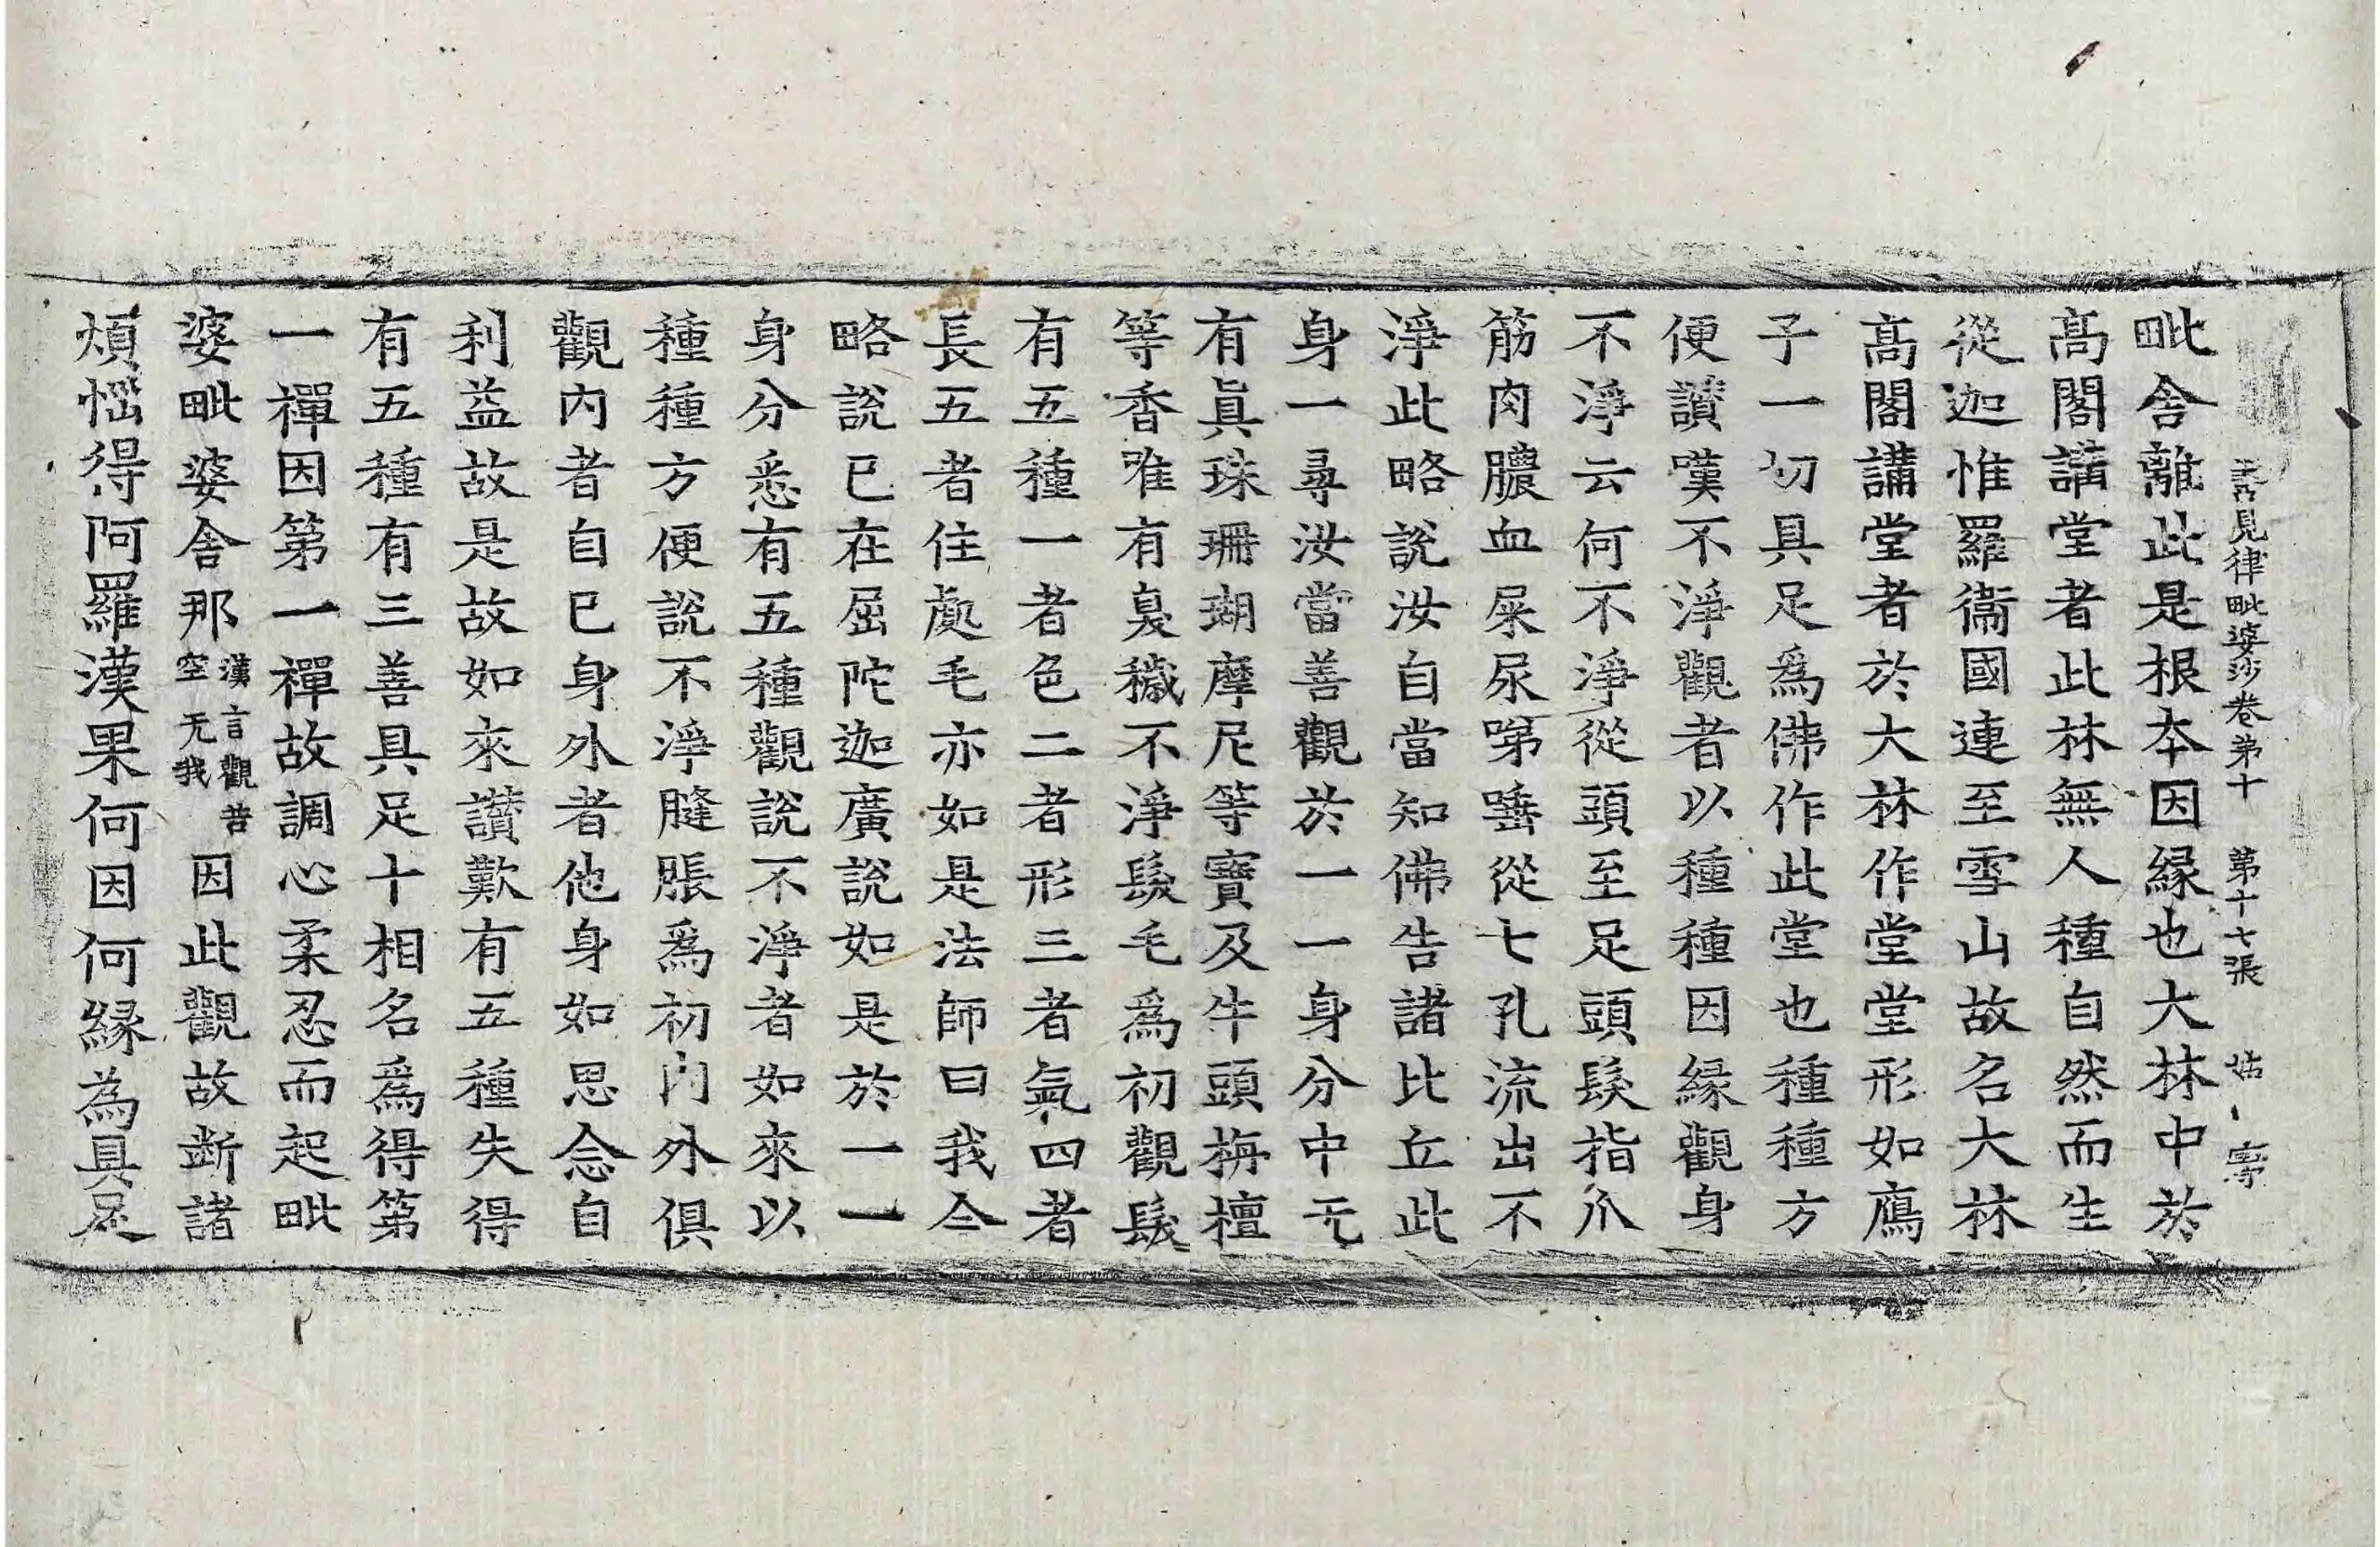 善見律毗婆沙卷第十　第十七張　姑
毗舍離此是根本因緣也大林中於
髙閣講堂者此林無人種自然而生
從迦惟羅衞國連至雪山故名大林
髙閣講堂者於大林作堂堂形如鴈
子一切具足爲佛作此堂也種種方
便讃嘆不淨觀者以種種因緣觀身
不淨云何不淨從頭至足頭髮指爪
筋肉膿血屎尿唾從七孔流出不
淨此略說汝自當知佛告諸比丘此
身一尋汝當善觀於一一身分中无
有眞珠珊瑚摩尼等寶及牛頭栴檀
等香唯有臭穢不淨髮毛爲初觀髮
有五種一者色二者形三者氣四者
長五者住處毛亦如是法師曰我今
略說已在屈陀迦廣說如是於一一
身分悉有五種觀說不淨者如來以
種種方便說不淨膖脹爲初内外俱
觀内者自已身外者他身如思念自
利益故是故如來讃歎有五種失得
有五種有三善具足十相名爲得第
一禪因第一禪故調心柔忍而起毗
婆毗婆舍那漢言觀苦空无我因此觀故斷諸
煩惱得阿羅漢果何因何緣為具足